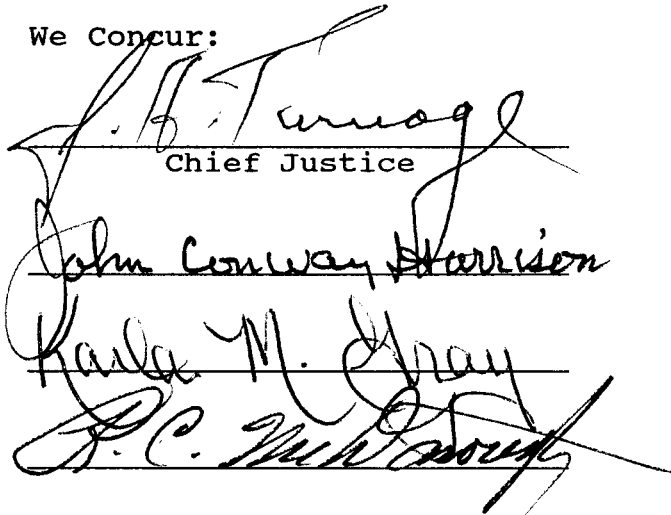 We Concur:
J. A. Turnage
Chief Justice
John Conway Harrison
Karla M. Gray
R. C. McDonough